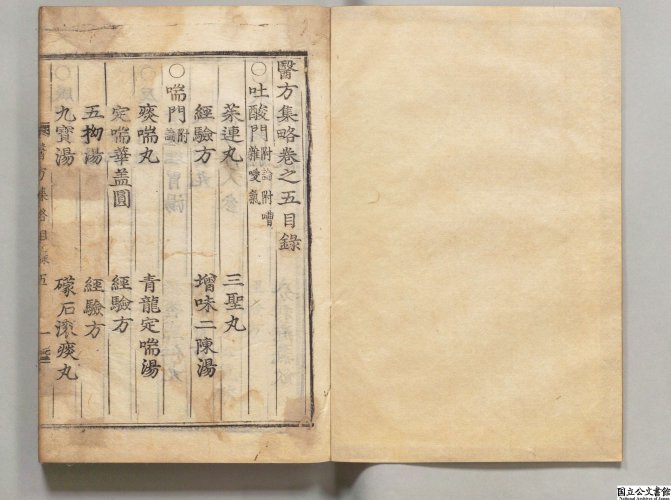 醫方集略卷之五目錄
〇吐酸門 附論附嘈雜噯氣
茱連丸 三聖丸
經驗方 增味二陳湯
〇喘門 附論
痰喘丸 青龍定喘湯
定喘華盖圓 經驗方
五拗湯 經驗方
九寶湯 礞石滚痰丸
醫方集畧目錄五 一
国立公文書館
National Archives of Japan